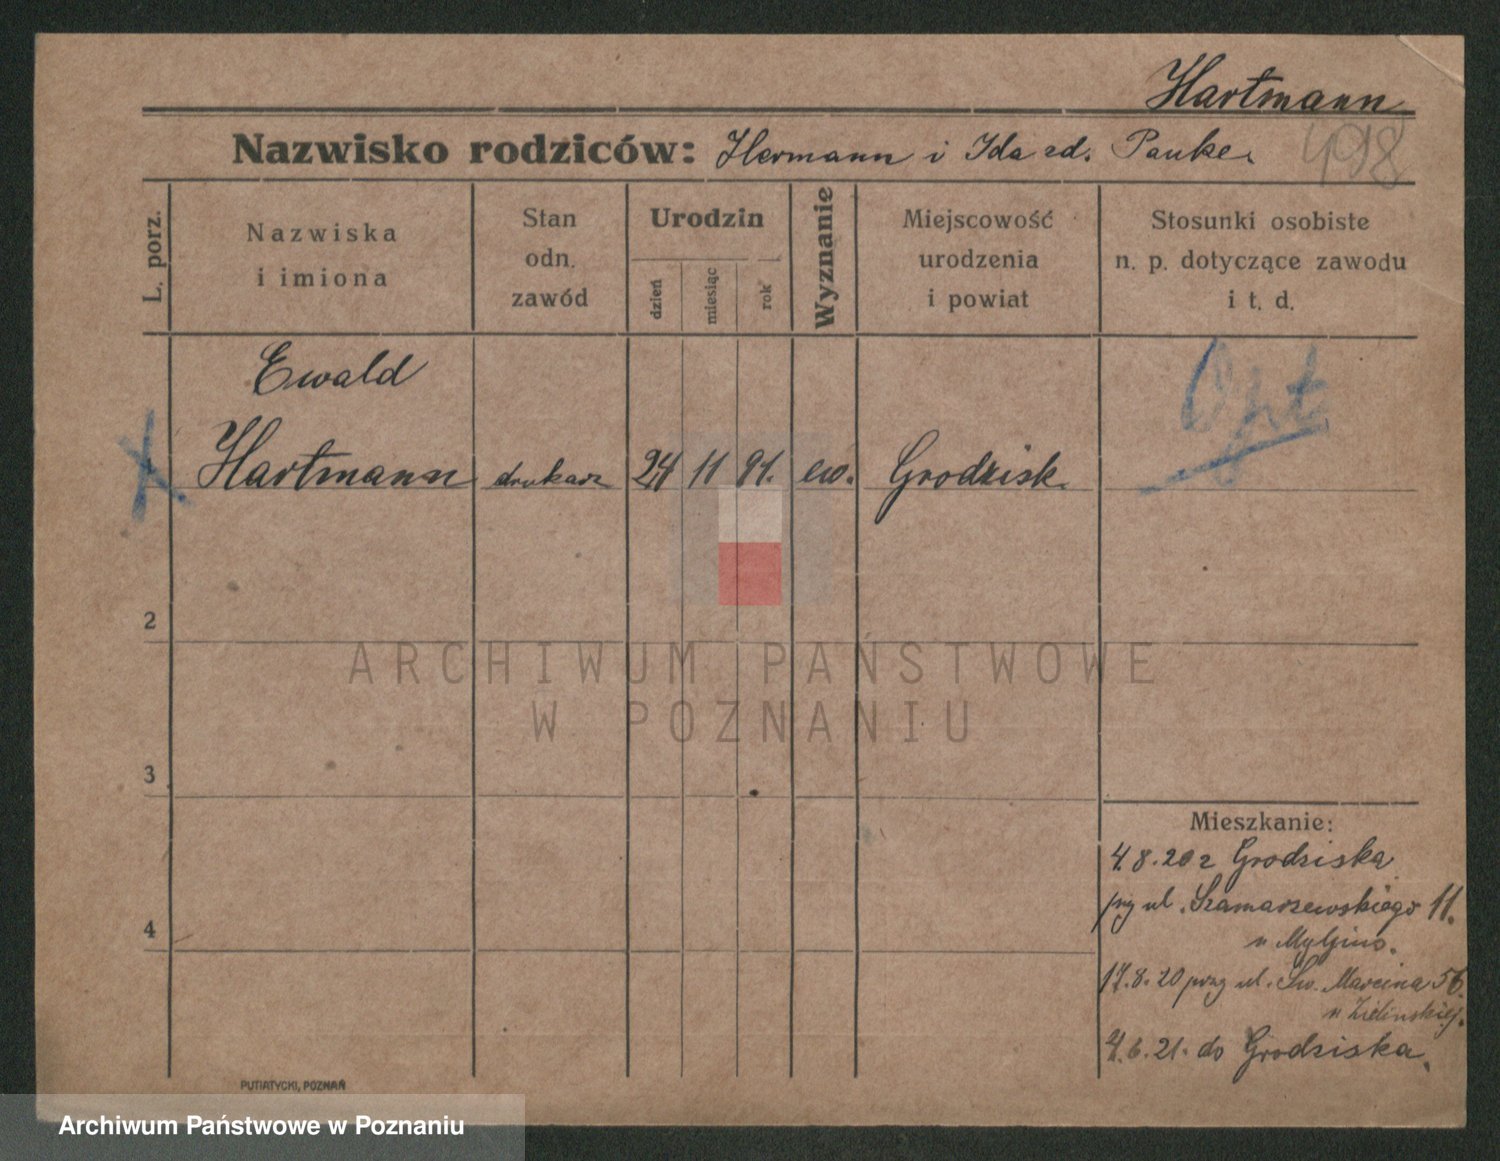 Hartmann
498
Nazwisko rodziców: Hermann i Ida zd. Pauke
L. porz.
Nazwiska
i imiona
Stan
odn.
zawód
Urodzin
dzień
miesiąc
rok
Wyznanie
Miejscowość
urodzenia
i powiat
Stosunki osobiste
n. p. dotyczące zawodu
i t. d.
Ewald
Hartmann drukarz 24 11 91. ew. Grodzisk
Opt
2
3
4
ARCHIWUM PAŃSTWOWE
W POZNANIU
Mieszkanie:
4.8.20 z Grodziska
przy ul. Szamarzewskiego 11.
u
17.8.20 przy ul. Św. Marcina 56.
u Zielińskiej.
6.21. do Grodziska
PUTIATYCKI, POZNAŃ
Archiwum Państwowe w Poznaniu